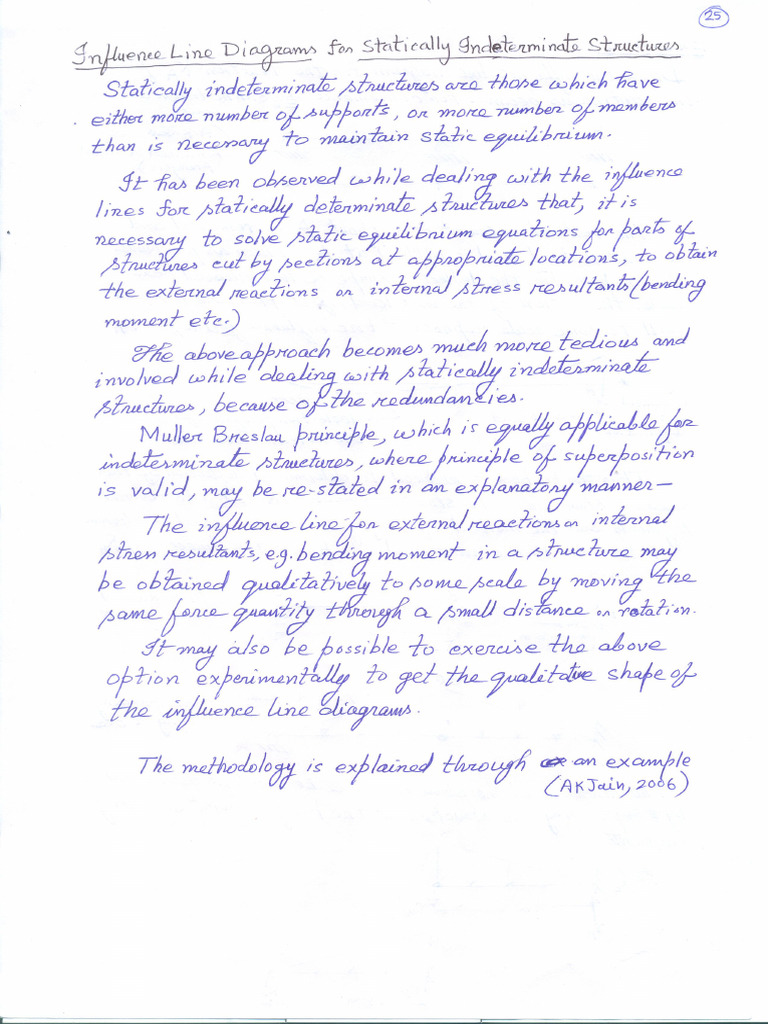 25
Influence Line Diagrams for Statically Indeterminate Structures
Statically indeterminate structures are those which have
either more number of supports, or more number of members
than is necessary to maintain static equilibrium.
It has been observed while dealing with the influence
lines for statically determinate structures that, it is
necessary to solve static equilibrium equations for parts of
structures cut by sections at appropriate locations, to obtain
the external reactions or internal stress resultants (bending
moment etc.)
The above approach becomes much more tedious and
involved while dealing with statically indeterminate
structures, because of the redundancies.
Muller Breslau principle, which is equally applicable for
indeterminate structures, where principle of superposition
is valid, may be re-stated in an explanatory manner—
The influence line for external reactions or internal
stress resultants, e.g. bending moment in a structure may
be obtained qualitatively to some scale by moving the
same force quantity through a small distance or rotation.
It may also be possible to exercise the above
option experimentally to get the qualitative shape of
the influence line diagrams.
The methodology is explained through an example
(AK Jain, 2006)